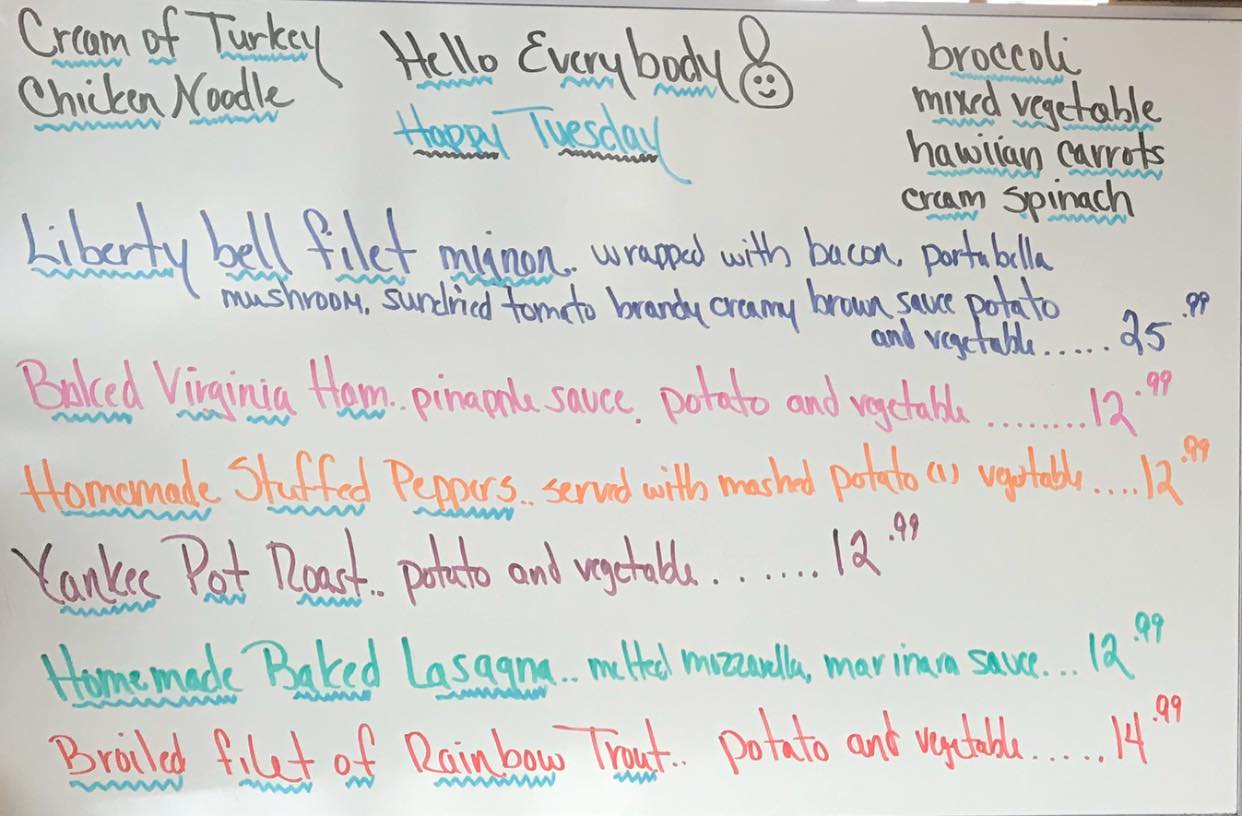 Cream of Turkey
Chicken Noodle
Hello Everybody
Happy Tuesday
broccoli
mixed vegetable
hawiian carrots
cream spinach
Liberty bell filet mignon.. wrapped with bacon, portabella
mushroom, sundried tomato brandy creamy brown sauce potato
and vegetable...... 25.99
Baked Virginia Ham.. pinapple sauce, potato and vegetable ........12.99
Homemade Stuffed Peppers.. served with mashed potato (1) vegetable ....12.99
Yankee Pot Roast.. potato and vegetable.......12.99
Homemade Baked Lasagna.. melted mozzarella, marinara sauce...12.99
Broiled filet of Rainbow Trout.. potato and vegetable......14.99